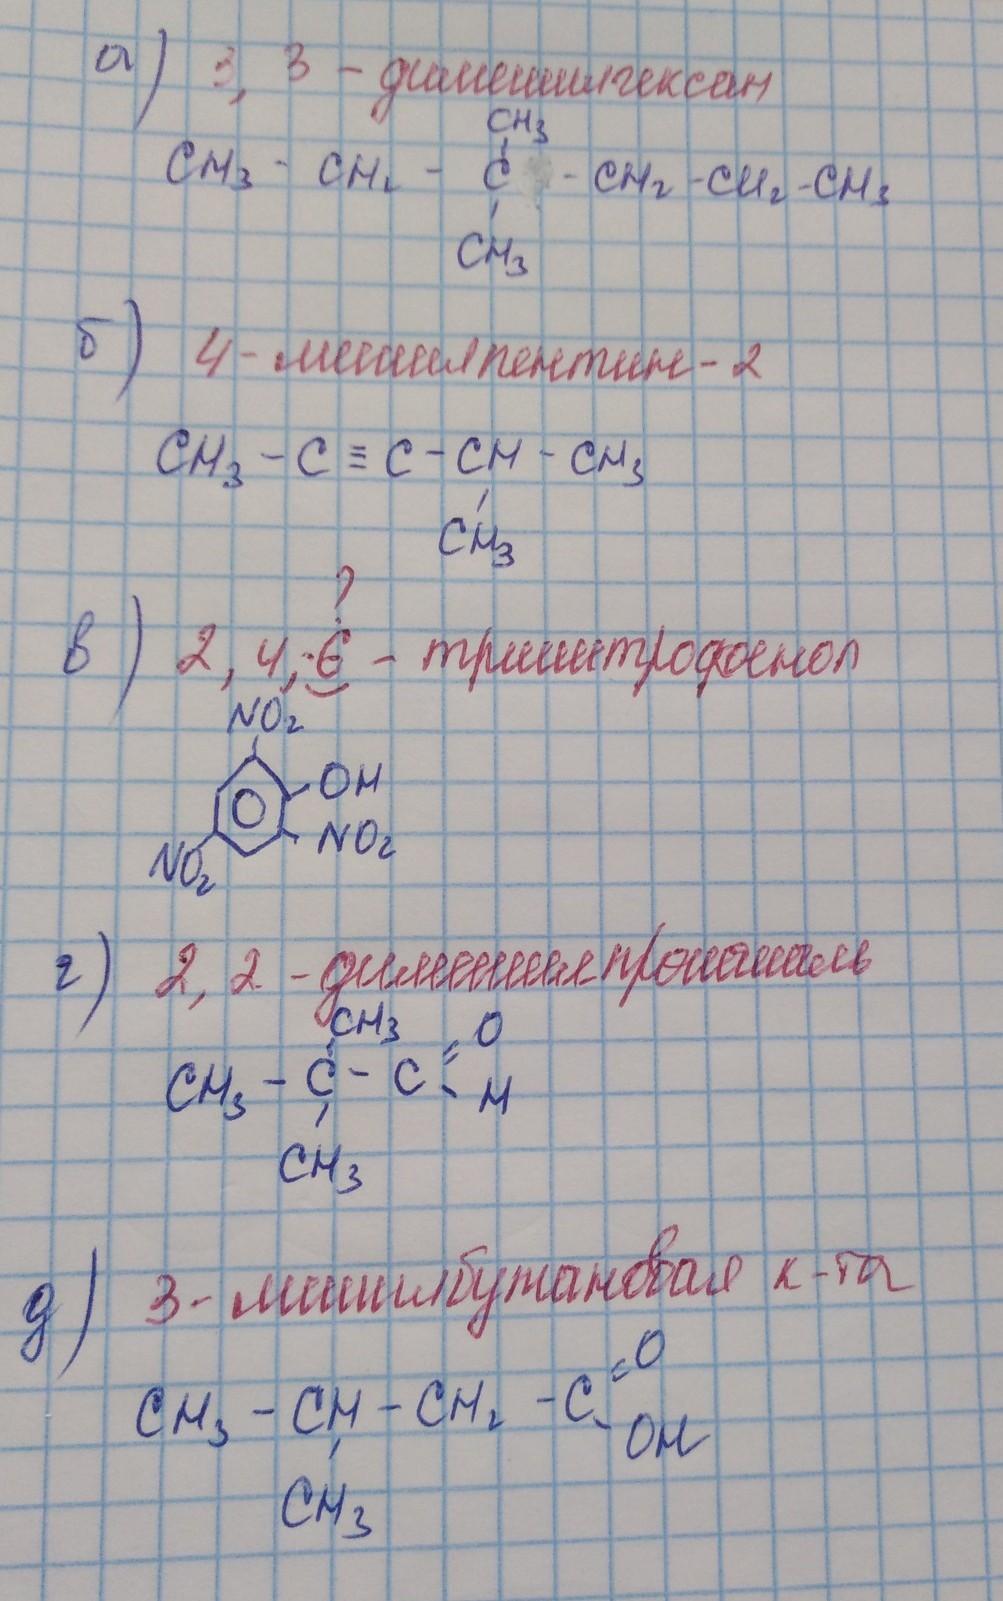 а) 3, 3 - диметилгексан
CH3
CH3 - CH2 - C - CH2 - CH2 - CH3
CH3
б) 4 - метилпентин - 2
CH3 - C ≡ C - CH - CH3
CH3
?
в) 2, 4, 6 - тринитрофенол
NO2
OH
NO2
NO2
г) 2, 2 - диметилпропаналь
CH3 O
CH3 - C - C
H
CH3
д) 3 - метилбутановая к-та
O
CH3 - CH - CH2 - C
OH
CH3